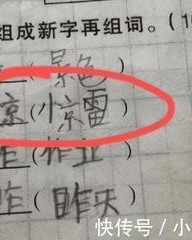 组成新字再组词。(1
(景色)
京(惊雷)
乍(作业)
乍(昨天)
快传号/小